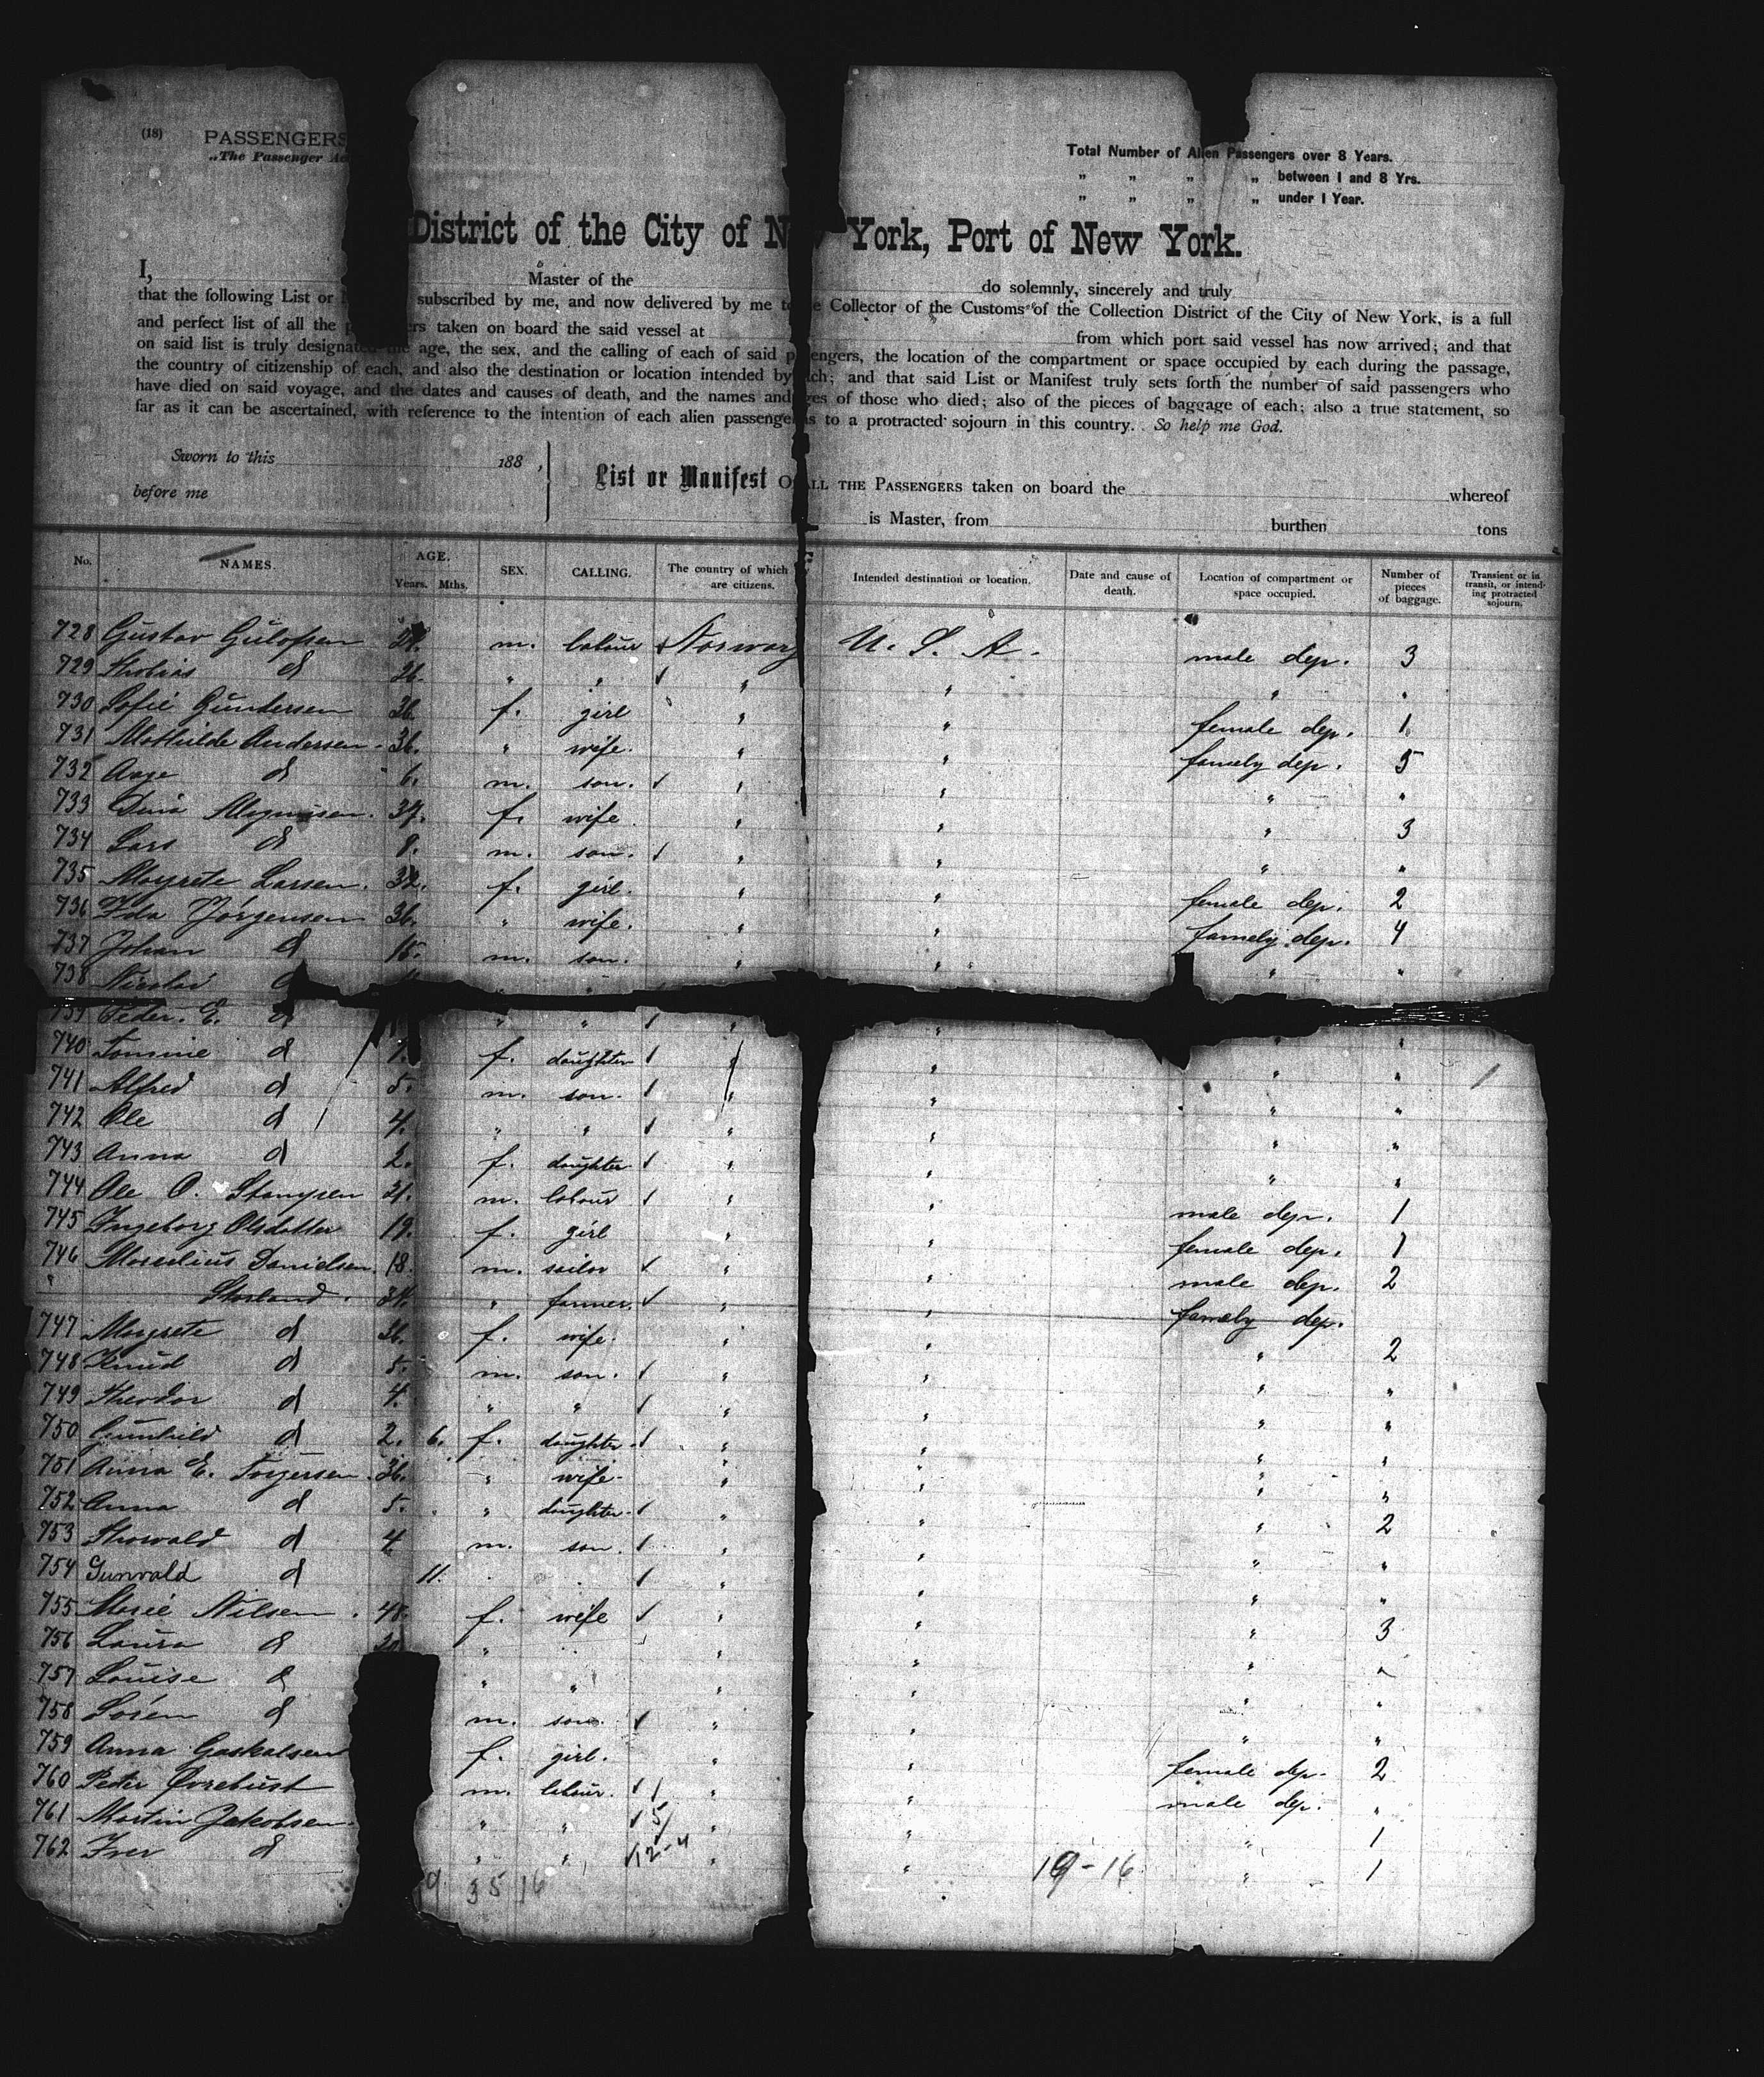 (18) PASSENGERS
„The Passenger Ac
Total Number of Alien Passengers over 8 Years.
„ „ „ „ between 1 and 8 Yrs.
„ „ „ „ under 1 Year.
District of the City of New York, Port of New York.
I, Master of the do solemnly, sincerely and truly
that the following List or subscribed by me, and now delivered by me to the Collector of the Customs of the Collection District of the City of New York, is a full
and perfect list of all the passengers taken on board the said vessel at from which port said vessel has now arrived; and that
on said list is truly designated the age, the sex, and the calling of each of said passengers, the location of the compartment or space occupied by each during the passage,
the country of citizenship of each, and also the destination or location intended by each; and that said List or Manifest truly sets forth the number of said passengers who
have died on said voyage, and the dates and causes of death, and the names and ages of those who died; also of the pieces of baggage of each; also a true statement, so
far as it can be ascertained, with reference to the intention of each alien passenger as to a protracted sojourn in this country. So help me God.
Sworn to this 188 ,
before me
List or Manifest OF ALL THE PASSENGERS taken on board the whereof
is Master, from burthen tons
No. NAMES. AGE. Years. Mths. SEX. CALLING. The country of which are citizens. Intended destination or location. Date and cause of death. Location of compartment or space occupied. Number of pieces of baggage. Transient or in transit, or intending protracted sojourn.
728 Gustav m. labour Norway U. S. A. male dep. 3
729 d 26. " " " " " "
730 Sofie Gundersen 26. f. girl " " female dep. 1
731 Mathilde Andersen 36. " wife. " " famely dep. 5
732 Aage d 6. m. son. " " " "
733 Magnusen. 37. f. wife " " " 3
734 Lars d m. son. " " " "
735 Margrete Larsen. 32. f. girl. " " female dep. 2
736 Ida Jörgensen 36. " wife. " " famely dep. 4
737 Johan d 15. m. son. " " " "
738 Nicolai d
739 Peder. E. d " " " "
740 d f. daughter " " " "
741 Alfred d 5. m. son. " " " "
742 Ole d 4. " " " " " "
743 Anna d 2. f. daughter " " " "
744 Ole O. 21. m. labour " " male dep. 1
745 Ingeborg Olsdatter 19. f. girl " " female dep. 1
746 Danielsen. 18. m. sailor " " male dep. 2
" " farmer. " " famely dep.
747 Margrete d 26. f. wife. " " " 2
748 Knud d 5. m. son. " " " "
749 Theodor d 4. " " " " " "
750 Gunhild d 2. 6. f. daughter " " " "
751 Anna E. Torgersen 36. " wife " " " "
752 Anna d 5. " daughter " " " 2
753 Thorvald d 4 m. son. " " " "
754 Gunvald d 11. " " " " " "
755 Marie Nilsen f. wife " " " 3
756 Laura d " " " " "
757 Louise d " " " " " "
758 Sören d m. son. " " " "
759 Anna f. girl. " " female dep. 2
760 Peder m. labour. " " male dep. "
761 Martin Jakobsen " " " " " 1
762 Iver d " " 12-4 " " " 1
35 16 19-16